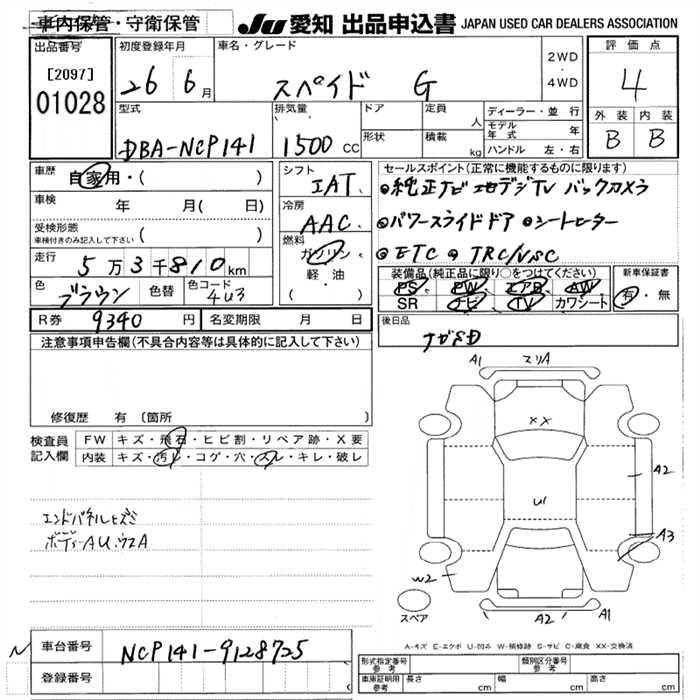 車内保管・守衛保管 JU 愛知 出品申込書 JAPAN USED CAR DEALERS ASSOCIATION
出品番号 初度登録年月 車名・グレード 評価点
[2097] 26 6月 スペイド G 2WD・4WD 4
01028
型式 排気量 ドア 定員 人 ディーラー・並行 外装 内装
DBA-NCP141 1500 CC 形状 積載 kg モデル年式 年 B B
ハンドル 左・右
車歴 自家用・( ) シフト セールスポイント(正常に機能するものに限ります)
IAT ◎純正ナビ 地デジTV バックカメラ
車検 年 月( 日) 冷房
AAC ◎パワースライドドア ◎シートヒーター
受検形態 車検付きのみ記入して下さい ( ) 燃料
ガソリン ◎ETC ◎TRC/VSC
走行 5万3千810km 軽・油 装備品(純正品に限り○をつけてください) 新車保証書
( ) PS PW エアB AW 有・無
色 ブラウン 色替 色コード 4U3 SR ナビ TV カワシート
R券 9340円 名変期限 月 日 後日品
注意事項申告欄(不具合内容等は具体的に記入して下さい) ナビSD
A1 スリA
XX
修復歴 有(箇所 )
検査員記入欄 FW キズ・飛石・ヒビ割・リペア跡・X要
内装 キズ・汚レ・コゲ・穴・スレ・キレ・破レ
A2
U1
エンドパネルヒズミ
ボデーAU.ウスA
A3
W2
スペア A2 A1
A-キズ E-エクボ U-凹み W-補修跡 S-サビ C-腐食 XX-交換済
N 車台番号 NCP141-9128725
登録番号
形式指定番号 参考 類別区分番号 参考
車庫証明用 参考 長さ cm 幅 cm 高さ cm